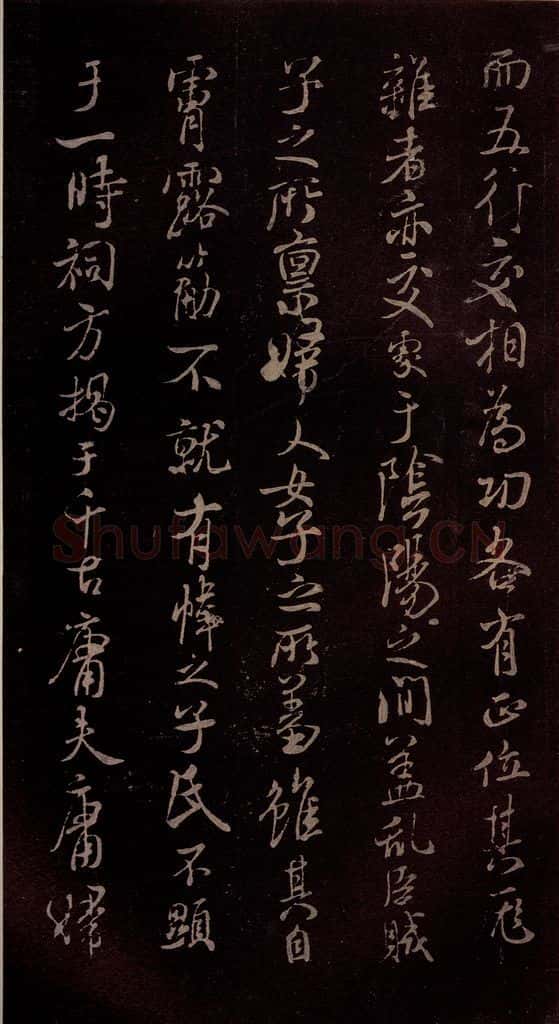 而五行交相為功各有正位其厖
雜者亦交于陰陽之間蓋乱臣賊
子之所稟婦人女子之所羞雖其自
霄露筋不就有幃之子氏不顯
于一時祠方揭于千古庸夫庸婦
Shufawang.CN